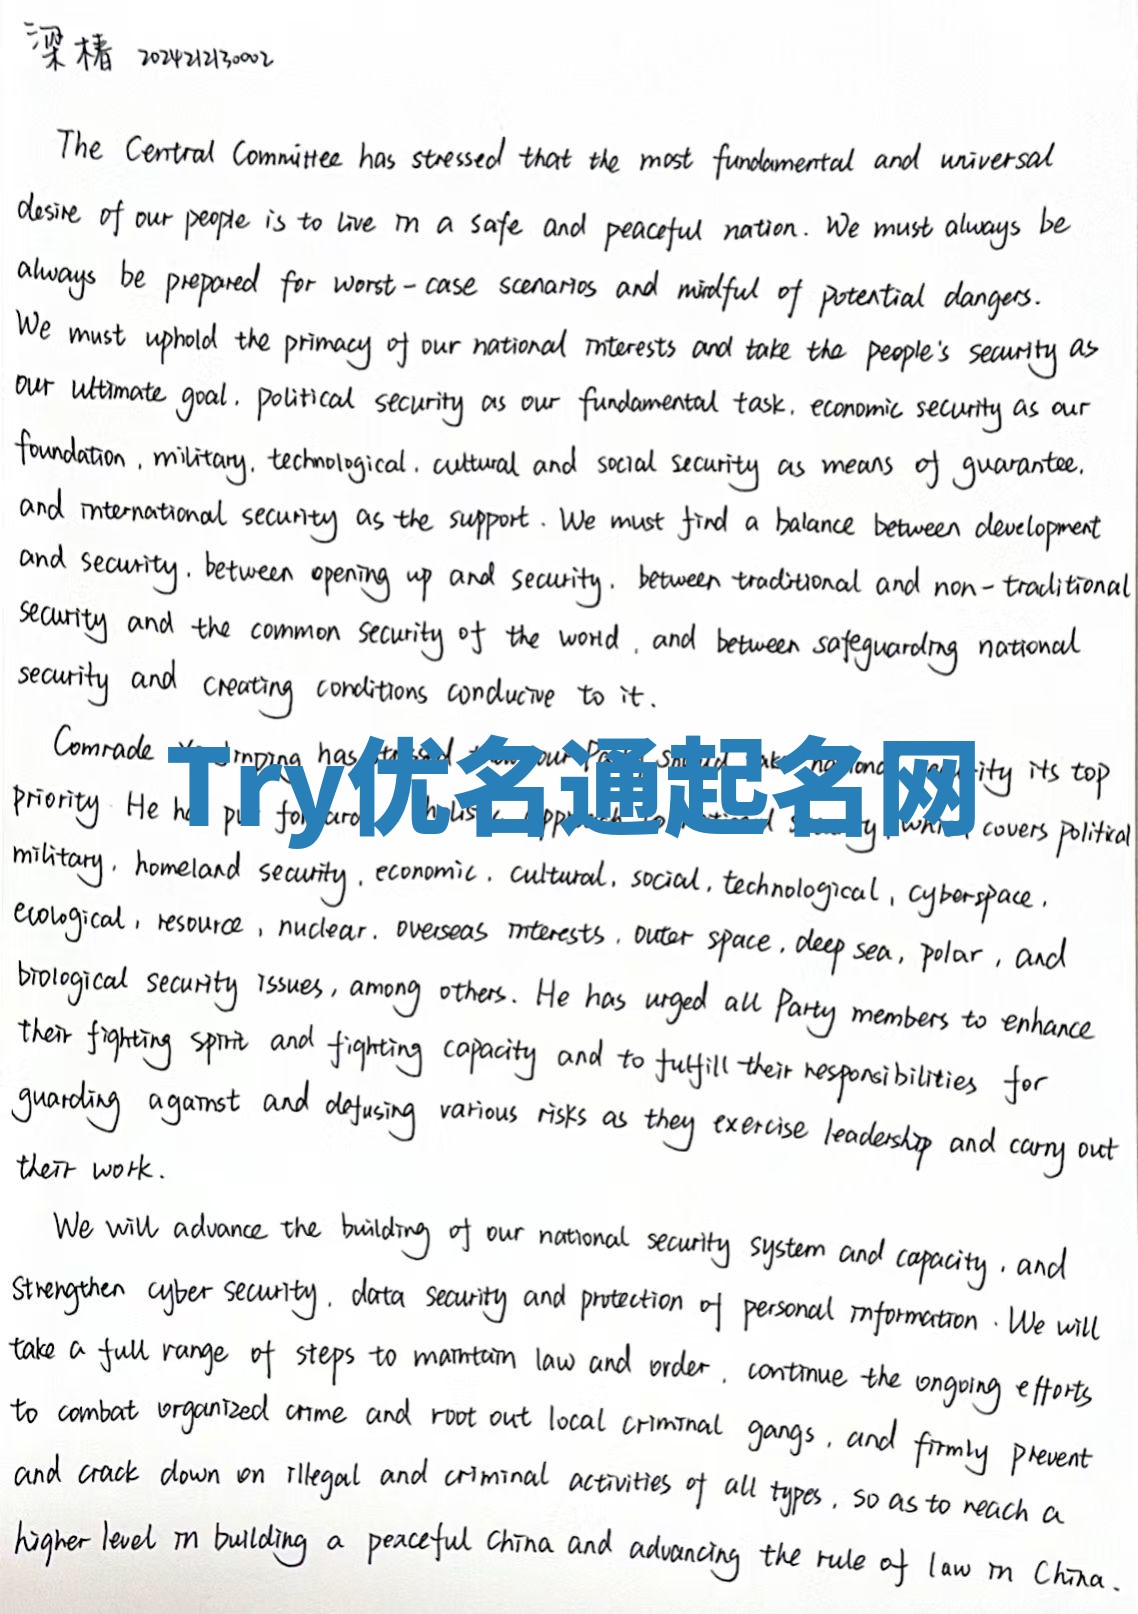 梁椿 2024212130002
The Central Committee has stressed that the most fundamental and universal
desire of our people is to live in a safe and peaceful nation. We must always be
always be prepared for worst-case scenarios and mindful of potential dangers.
We must uphold the primacy of our national interests and take the people's security as
our ultimate goal, political security as our fundamental task, economic security as our
foundation, military, technological, cultural and social security as means of guarantee,
and international security as the support. We must find a balance between development
and security, between opening up and security, between traditional and non-traditional
security and the common security of the world, and between safeguarding national
security and creating conditions conducive to it.
Comrade has our its top
Try优名通起名网
priority He put covers political
military, homeland security, economic, cultural, social, technological, cyberspace,
ecological, resource, nuclear, overseas interests, outer space, deep sea, polar, and
biological security issues, among others. He has urged all Party members to enhance
their fighting spirit and fighting capacity and to fulfill their responsibilities for
guarding against and defusing various risks as they exercise leadership and carry out
their work.
We will advance the building of our national security system and capacity, and
strengthen cyber security, data security and protection of personal information. We will
take a full range of steps to maintain law and order, continue the ongoing efforts
to combat organized crime and root out local criminal gangs, and firmly prevent
and crack down on illegal and criminal activities of all types, so as to reach a
higher level in building a peaceful China and advancing the rule of law in China.